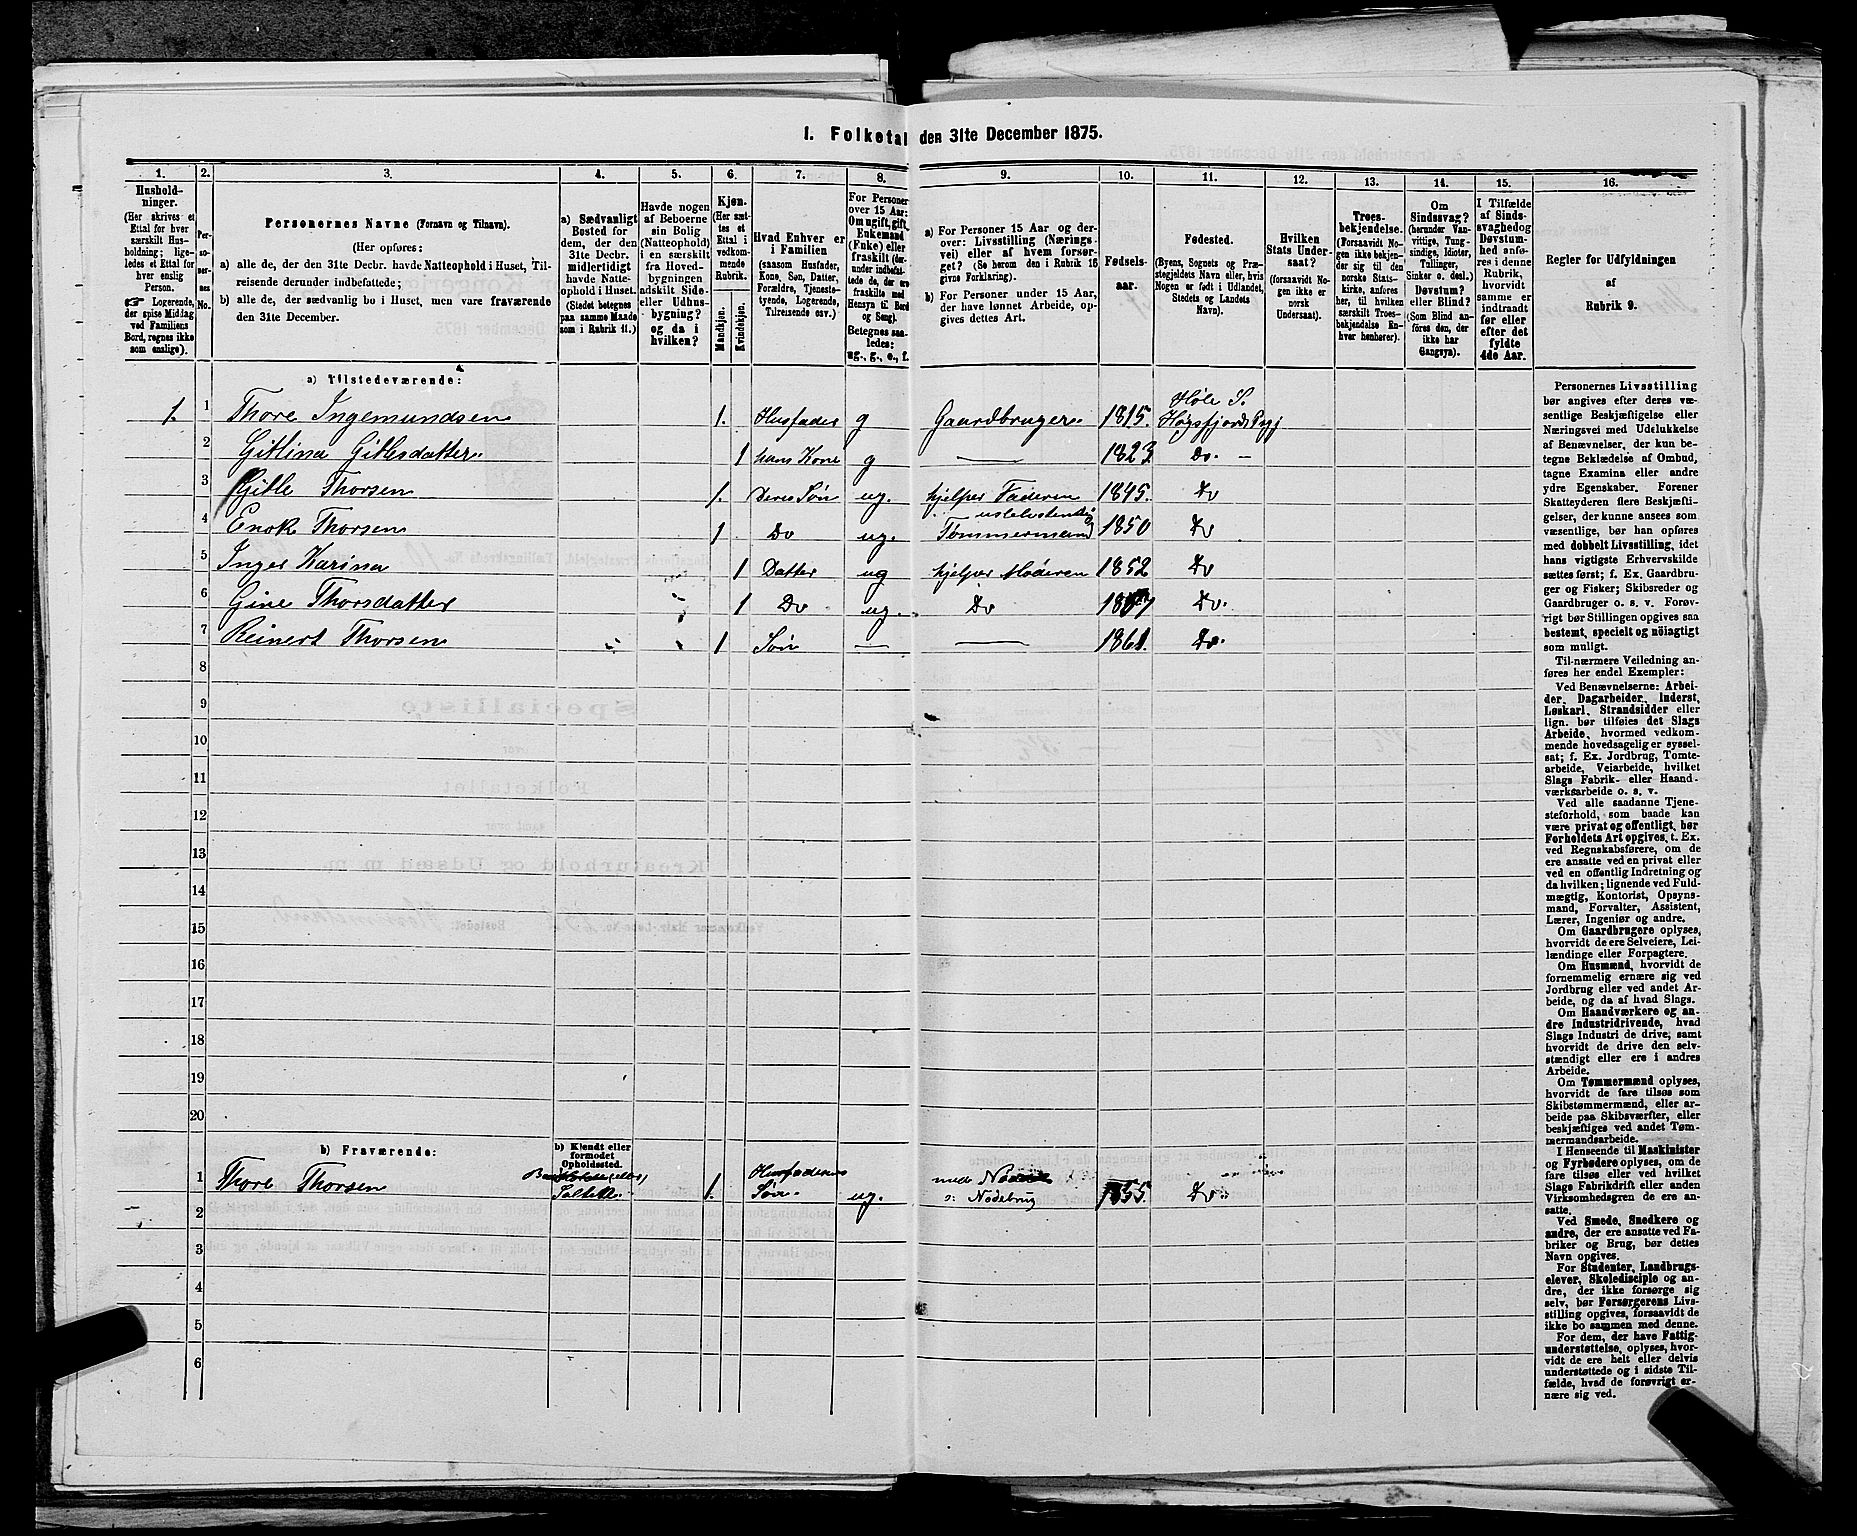 1. Folketal den 31te December 1875.
1.
Hushold-
ninger.
(Her skrives et
Ettal for hver
særskilt Hus-
holdning; lige-
ledes et Ettal for
hver enslig
Person.
Logerende,
der spise Middag
ved Familiens
Bord, regnes ikke
som enslige).
2.
Per-
so-
ner-
nes
No.
3.
Personernes Navne (Fornavn og Tilnavn).
(Her opføres:
a) alle de, der den 31te Decbr. havde Natteophold i Huset, Til-
reisende derunder indbefattede;
b) alle de, der sædvanlig bo i Huset, men vare fraværende
den 31te December.
4.
a) Sædvanligt
Bosted for
dem, der den
31te Decbr.
midlertidigt
havde Natte-
ophold i Huset.
(Stedet betegnes
paa samme Maade
som i Rubrik 11.)
5.
Havde nogen
af Beboerne
sin Bolig
(Natteophold)
i en særskilt
fra Hoved-
bygningen
adskilt Side-
eller Udhus-
bygning?
og da i
hvilken?
6.
Kjøn.
(Her sæt-
tes et
Ettal i
vedkom-
mende
Rubrik.
Mandkjøn.
Kvindekjøn.
7.
Hvad Enhver er
i Familien
(saasom Husfader,
Kone, Søn, Datter,
Forældre, Tjeneste-
tyende, Logerende,
Tilreisende osv.)
8.
For Personer
over 15 Aar:
Om ugift, gift,
Enkemand
(Enke) eller
fraskilt (der-
under indbefat-
tede de, der ere
fraskilte med
Hensyn til Bord
og Seng).
Betegnes saa-
ledes:
ug., g., e., f.
9.
a) For Personer 15 Aar og der-
over: Livsstilling (Nærings-
vei) eller af hvem forsør-
get? (Se herom den i Rubrik 16
givne Forklaring).
b) For Personer under 15 Aar,
der have lønnet Arbeide, op-
gives dettes Art.
10.
Fødsels-
aar.
11.
Fødested.
(Byens, Sognets og Præ-
stegjeldets Navn eller, hvis
Nogen er født i Udlandet,
Stedets og Landets
Navn).
12.
Hvilken
Stats Under-
saat?
(forsaavidt No-
gen ikke er
norsk
Undersaat).
13.
Troes-
bekjendelse.
(Forsaavidt No-
gen ikke bekjen-
der sig til den
norske Stats-
kirke, anføres
her, til hvilken
særskilt Troes-
bekjendelse En-
hver henhører).
14.
Om
Sindssvag?
(herunder Van-
vittige, Idioter,
Tullinger,
Sinker o. desl.)
Døvstum?
eller Blind?
(Som Blind an-
føres den, der
ikke har
Gangsyn).
15.
I Tilfælde
af Sinds-
svaghed og
Døvstum-
hed anfø-
res i denne
Rubrik,
hvorvidt
samme er
indtraadt
før eller
efter det
fyldte
4de Aar.
16.
Regler for Udfyldningen
af
Rubrik 9.
a) Tilstedeværende:
Høle S.
1. 1 Thore Ingemundsen 1. Husfader g Gaardbruger. 1815. Høgsfjord Pgj
2 Gitlina Gitlesdatter. 1 hans Kone g — 1823. Do. —
3 Gitle Thorsen 1. Deres Søn ug. hjelper Faderen 1845. Do
4 Enok Thorsen 1 Do ug. Tømmermand 1850 Do
5 Inger Karina 1 Datter ug hjelper Moderen 1852 Do
6 Gine Thorsdatter 1 Do ug. Do Do.
7 Reinert Thorsen 1 Søn — — 1861. Do.
8
9
10
11
12
13
14
15
16
17
18
19
20
b) Fraværende:
b) Kjendt eller
formodet
Opholdssted.
Husfaderens
1 Thore Thorsen 1. Søn. ug. 1855. Do.
2
3
4
5
6
Personernes Livsstilling
bør angives efter deres væ-
sentlige Beskjæftigelse eller
Næringsvei med Udelukkelse
af Benævnelser, der kun be-
tegne Beklædelse af Ombud,
tagne Examina eller andre
ydre Egenskaber. Forener
Skatteyderen flere Beskjæfti-
gelser, der kunne ansees som
væsentlige, bør han opføres
med dobbelt Livsstilling, idet
hans vigtigste Erhvervskilde
sættes først; f. Ex. Gaardbru-
ger og Fisker; Skibsreder og
Gaardbruger o. s. v. Forøv-
rigt bør Stillingen opgives saa
bestemt, specielt og nöiagtigt
som muligt.
Til nærmere Veiledning an-
føres her endel Exempler:
Ved Benævnelserne: Arbei-
der, Dagarbeider, Inderst,
Løskarl, Strandsidder eller
lign. bør tilføies det Slags
Arbeide, hvormed vedkom-
mende hovedsagelig er syssel-
sat; f. Ex. Jordbrug, Tomte-
arbeide, Veiarbeide, hvilket
Slags Fabrik- eller Haand-
værksarbeide o. s. v.
Ved alle saadanne Tjene-
steforhold, som baade kan
være privat og offentligt, bør
Forholdets Art opgives, t. Ex.
ved Regnskabsførere, om de
ere ansatte ved en privat eller
ved en offentlig Indretning og
da hvilken; lignende ved Fuld-
mægtig, Kontorist, Opsyns-
mand, Forvalter, Assistent,
Lærer, Ingeniør og andre.
Om Gaardbrugere oplyses,
hvorvidt de ere Selveiere, Lei-
lændinge eller Forpagtere.
Om Husmænd, hvorvidt de
fornemmelig ernære sig ved
Jordbrug eller ved andet Ar-
beide, og da af hvad Slags.
Om Haandværkere og an-
dre Industridrivende, hvad
Slags Industri de drive, samt
hvorvidt de drive den selv-
stændigt eller ere i andres
Arbeide.
Om Tømmermænd oplyses,
hvorvidt de fare tilsøs som
Skibstømmermænd, eller ar-
beide paa Skibsværfter, eller
beskjæftiges ved andet Tøm-
mermandsarbeide.
I Henseende til Maskinister
og Fyrbødere oplyses, om de
fare tilsøs eller ved hvilket
Slags Fabrikdrift eller anden
Virksomhedsgren de ere an-
satte.
Ved Smede, Snedkere og
andre, der ere ansatte ved Fa-
briker og Brug, bør dettes
Navn opgives.
For Studenter, Landbrugs-
elever, Skoledisciple og an-
dre, der ikke forsørge sig
selv, bør Forsørgerens Livs-
stilling opgives, forsaavidt de
ikke bo sammen med denne.
For dem, der have Fattig-
understøttelse, oplyses, hvor-
vidt de ere helt eller delvis
understøttede og i sidste Til-
fælde, hvad de forøvrigt er-
nære sig ved.